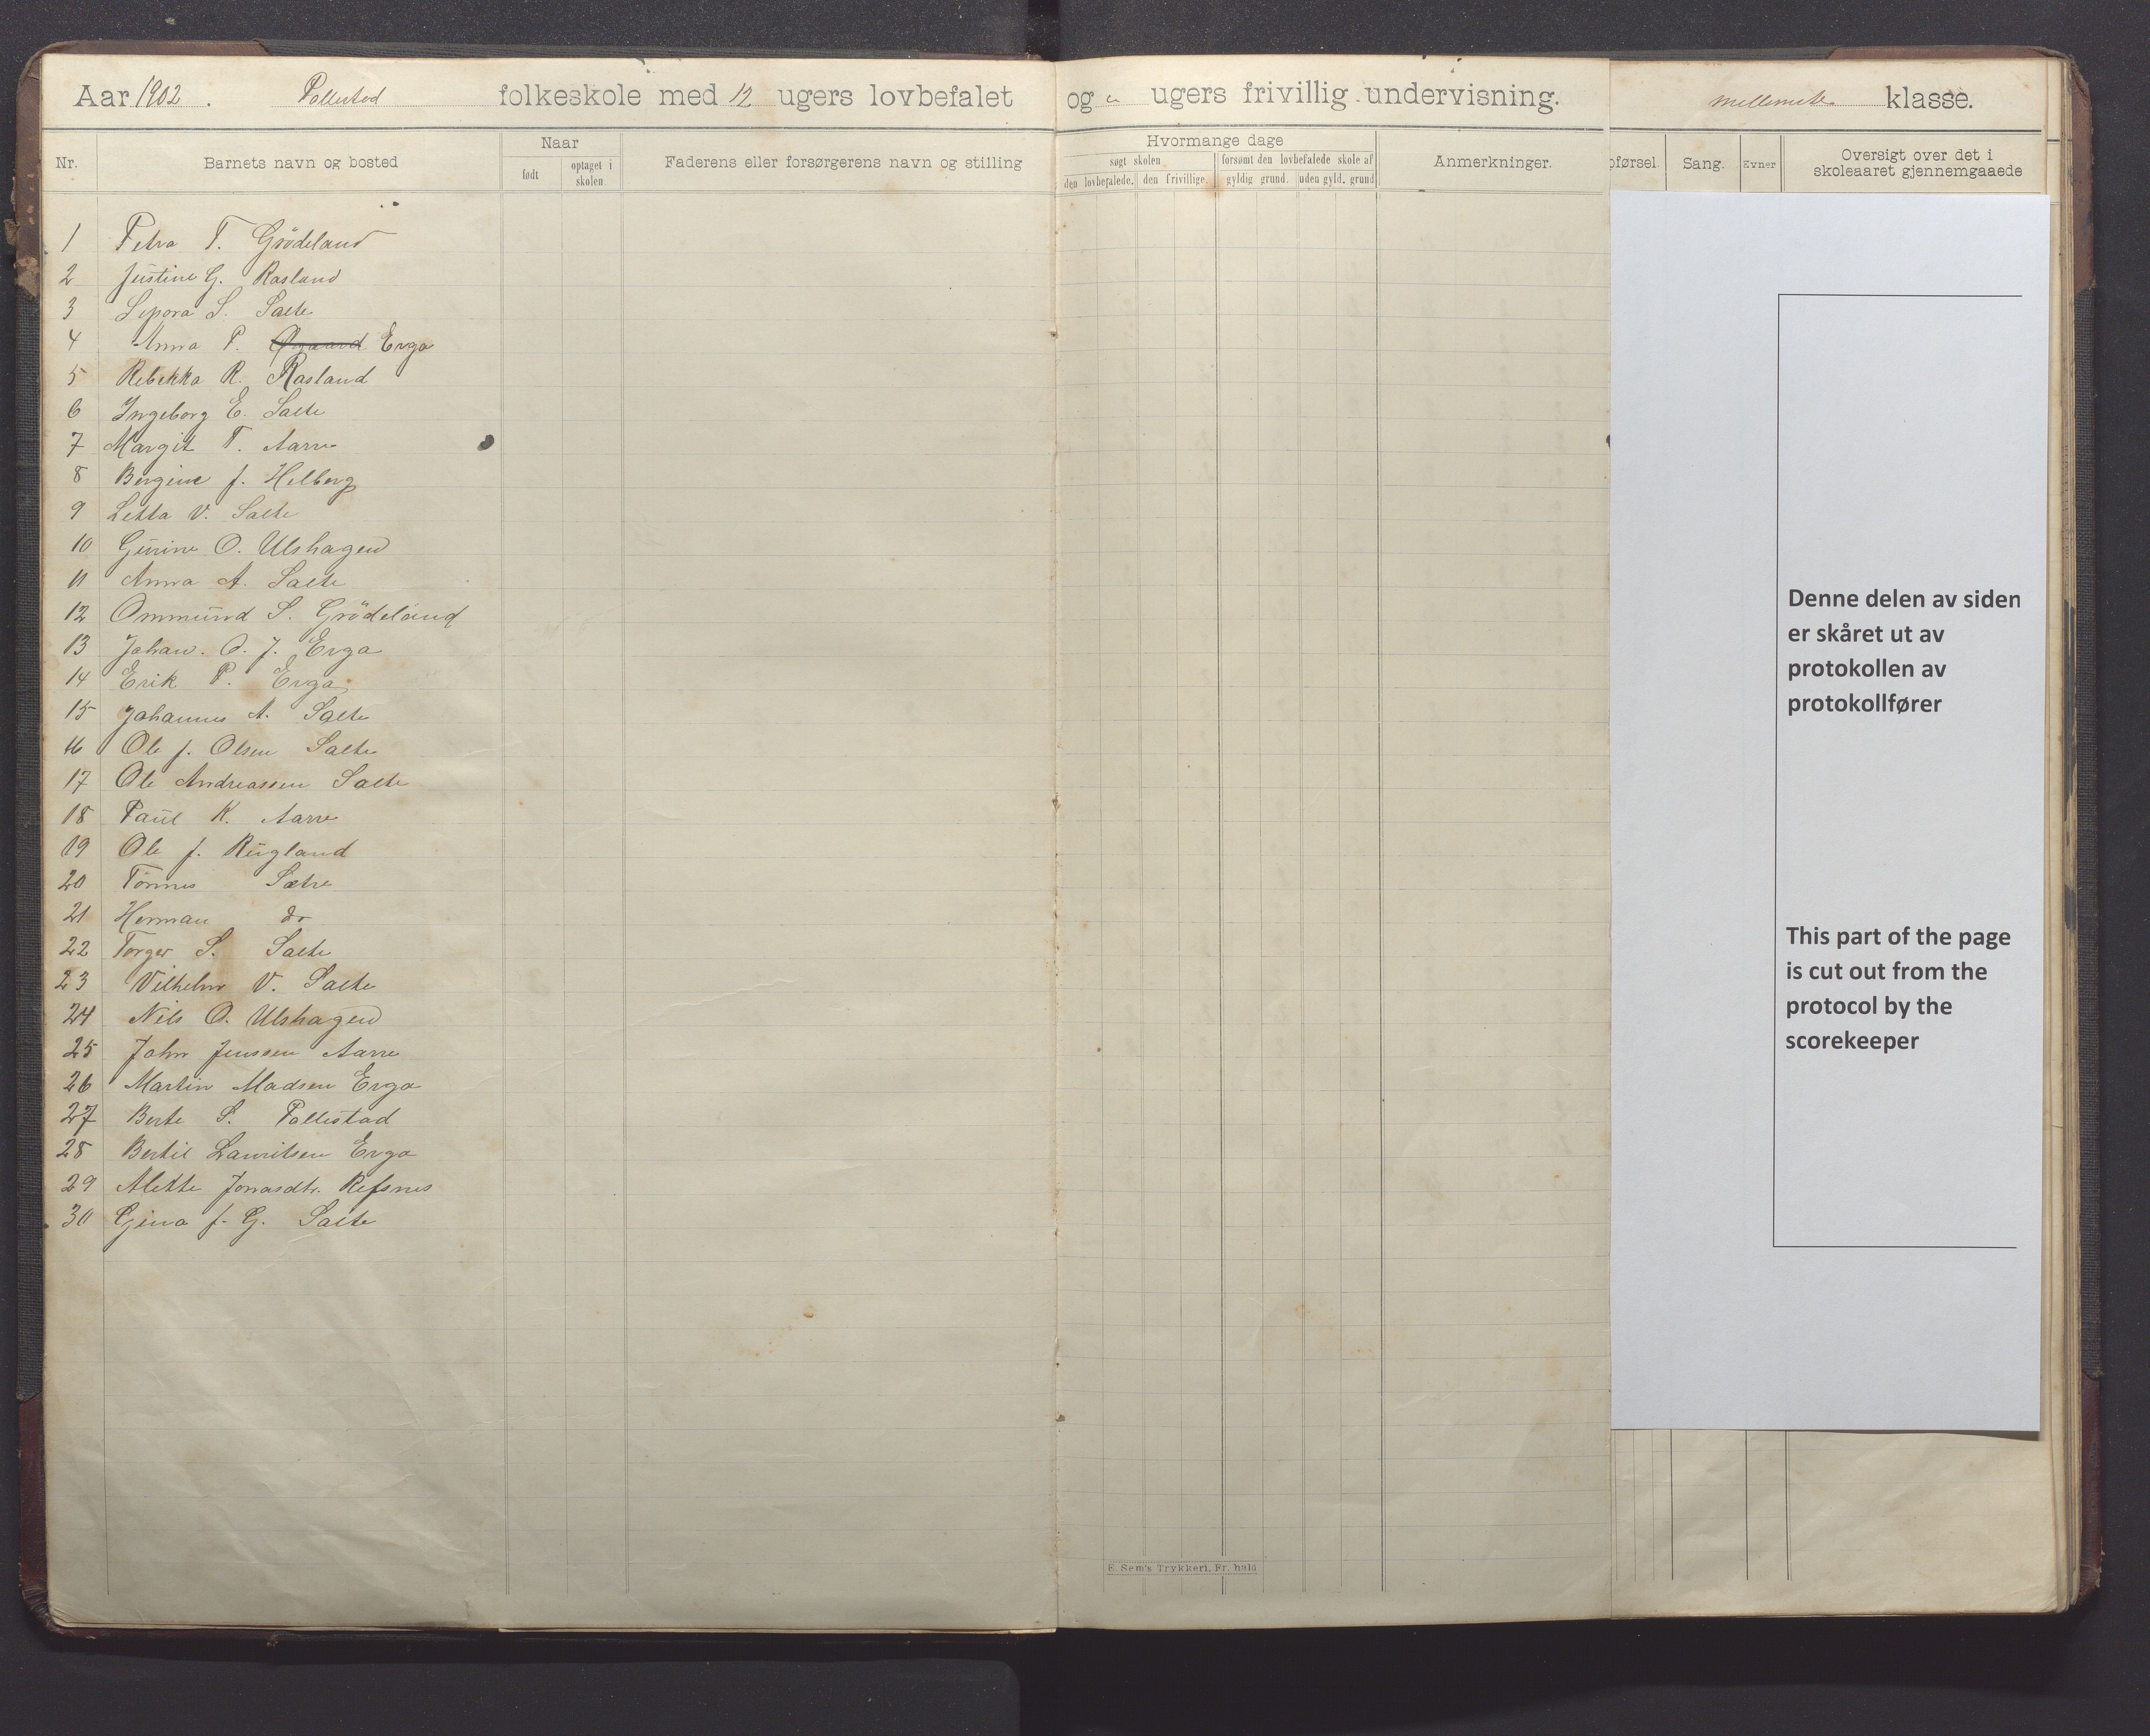 Aar 1902. Pollestad folkeskole med 12 ugers lovbefalet og „ ugers frivillig undervisning. mellemste klasse.
Nr. Barnets navn og bosted Naar født optaget i skolen Faderens eller forsørgerens navn og stilling
Hvormange dage søgt skolen den lovbefalede. den frivillige. forsømt den lovbefalede skole af gyldig grund. uden gyld. grund Anmerkninger.
pførsel. Sang. Evner Oversigt over det i skoleaaret gjennemgaaede
1 Petra T. Grödeland
2 Justine G. Rasland
3 Sepora S. Salte
4 Anna P. Erga
5 Rebekka R. Rasland
6 Ingeborg E. Salte
7 Margit T. Aarre
8 Bergine J. Helberg
9 Letta V. Salte
10 Gurine O. Ulshagen
11 Anna A. Salte
12 Ommund S. Grödeland
13 Johan. O. J. Erga
14 Erik P. Erga
15 Johannes A. Salte
16 Ole J. Olsen Salte
17 Ole Andreassen Salte
18 Paul K. Aarre
19 Ole J. Rugland
20 Tönnes Sætre
21 Herman do
22 Torger S. Salte
23 Vilhelm V. Salte
24 Nils O. Ulshagen
25 John Jenssen Aarre
26 Martin Madsen Erga
27 Berte S. Pollestad
28 Bertil Lauritsen Erga
29 Alette Jonasdtr. Refsnes
30 Gina J. G. Salte
E. Sem's Trykkeri, Fr. hald
Denne delen av siden
er skåret ut av
protokollen av
protokollfører
This part of the page
is cut out from the
protocol by the
scorekeeper